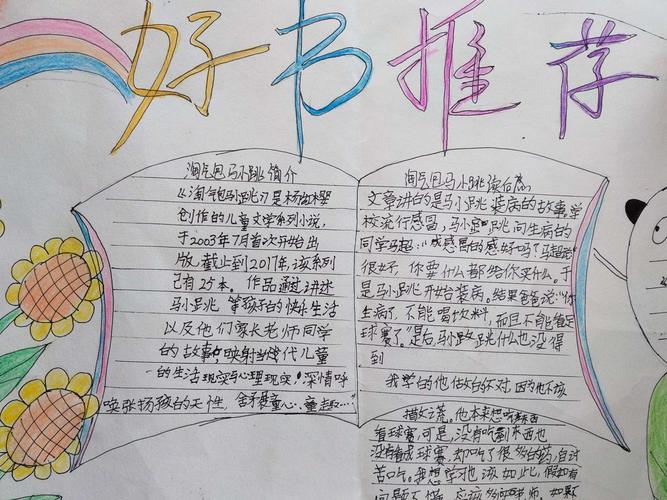 好书推荐
淘气包马小跳简介
《淘气包马小跳》是杨红樱
创作的儿童文学系列小说,
于2003年7月首次开始出
版,截止到2017年,该系列
已有25本。作品通过讲述
马小跳等孩子的快乐生活
以及他们家长老师同学
的故事,映射当代儿童
的生活现实与心理现实!深情呼
唤张扬孩的天性,舍得童心、童趣……
淘气包马小跳读后感
文章讲的是马小跳装病的故事,学
校流行感冒,马小跳问生病的
同学马超:"感冒的感好吗?马超说
很好,你要什么都给你买什么。于
是马小跳开始装病。结果爸爸说:"你
生病了,不能喝饮料,而且不能看足
球赛了。"是后,马小跳什么也没得
到
我学的他做的不对,因为他不该
撒女谎。他本来想吃东西
看球赛,可是,没有吃到东西也
没有看成球赛,却吃了很多的药,自讨
苦吃。我想学习也该如此,假如有
问题不懂,应该